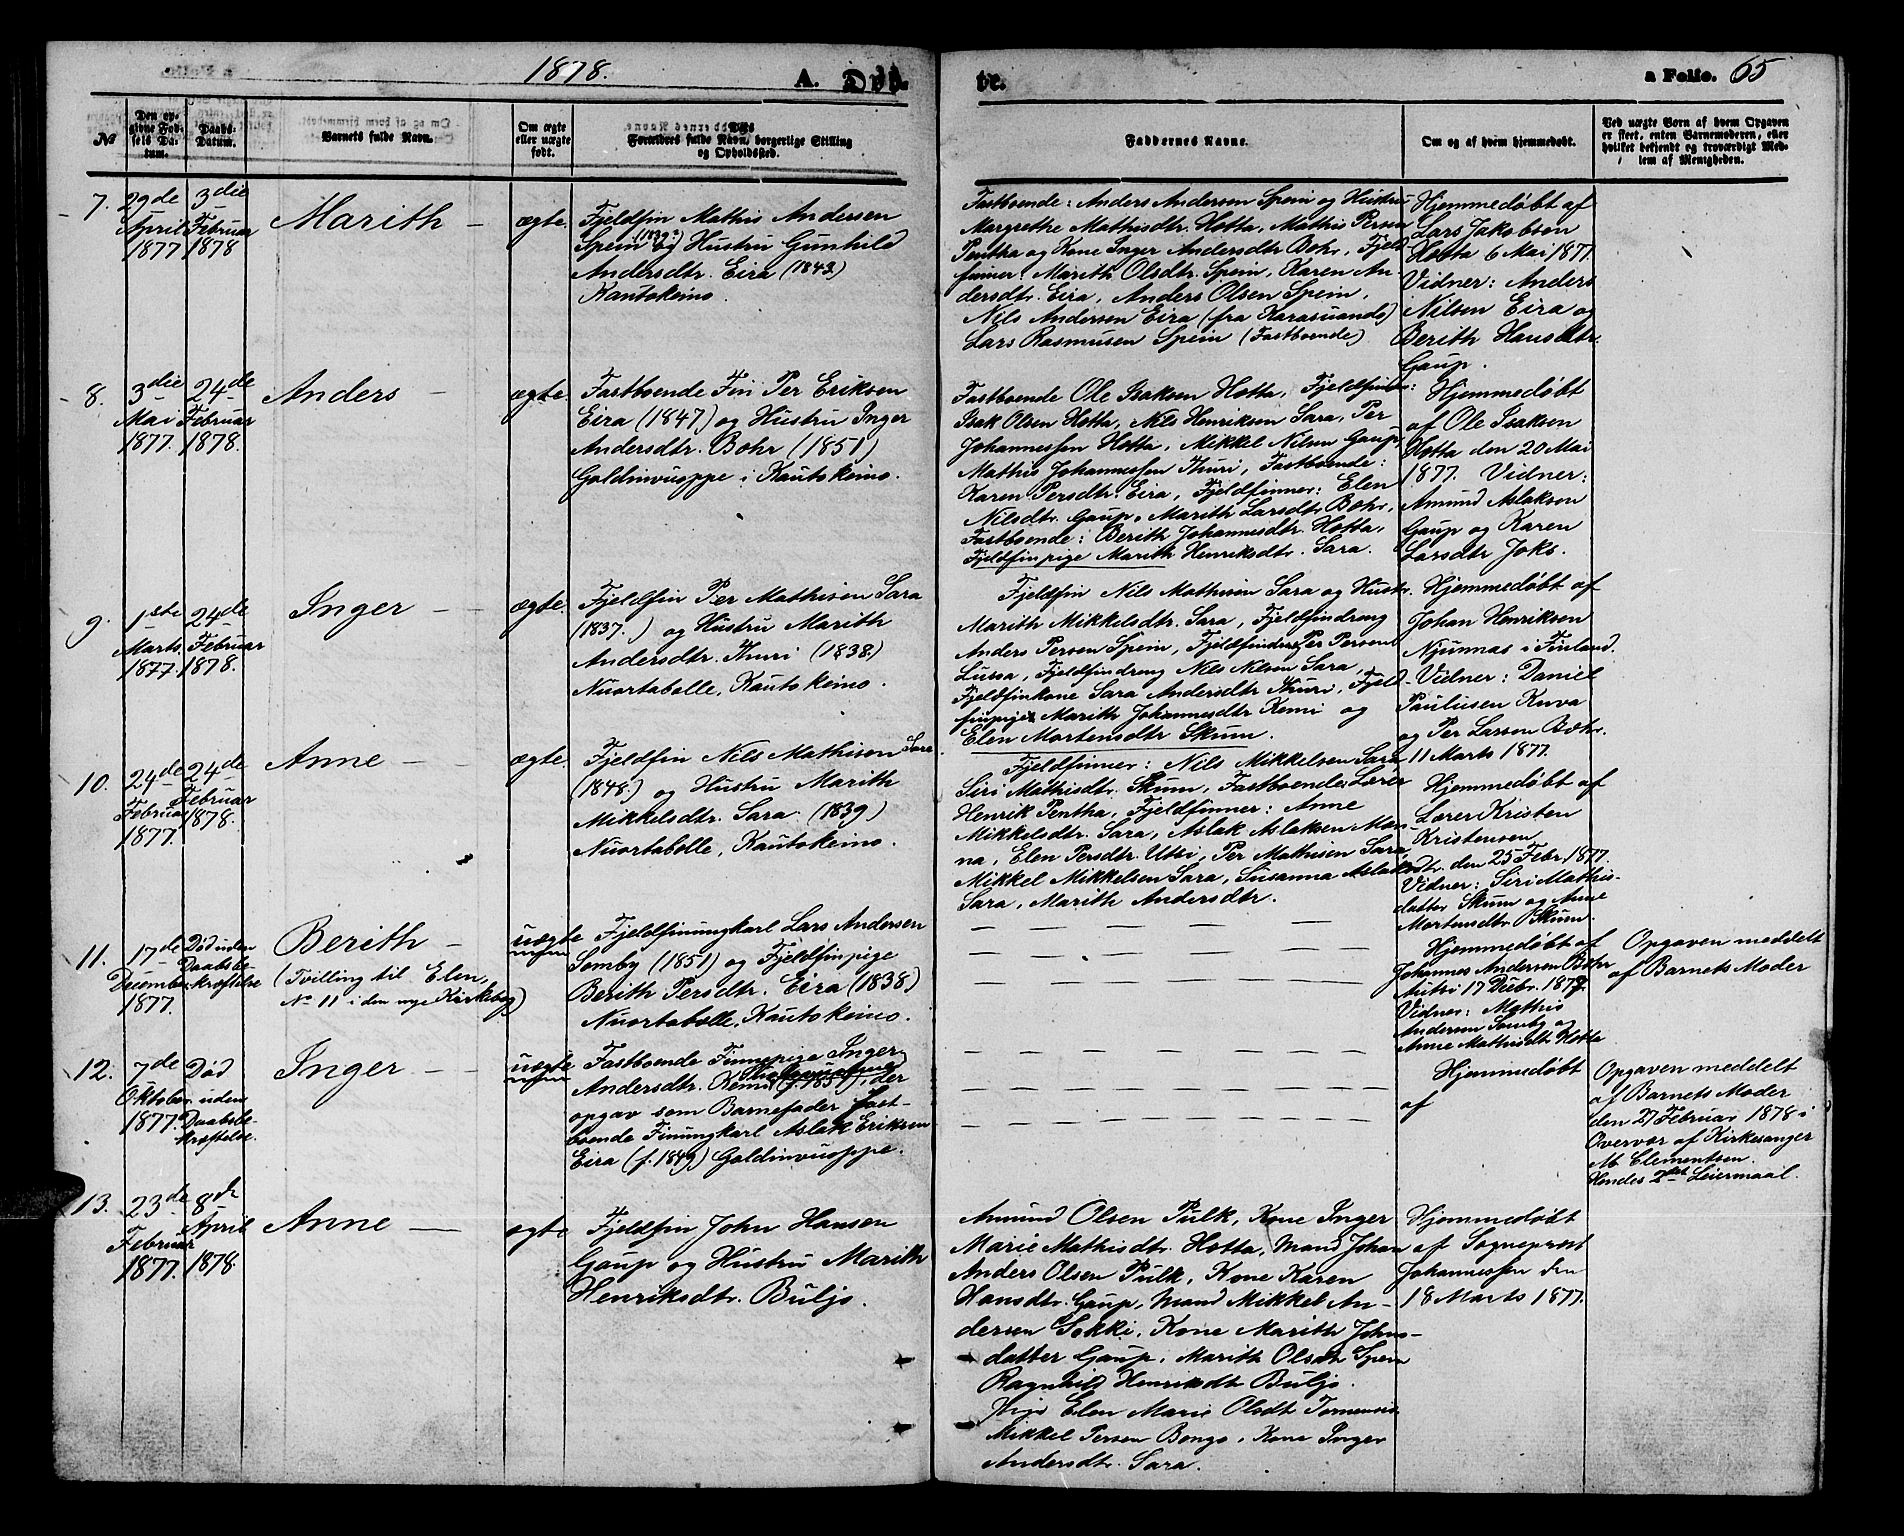 1878. A. Døbte. a Folio. 65
№
Den opgivne Fødsels Datum.
Daabs-Datum.
Barnets fulde Navn.
Om ægte eller uægte født.
Forældres fulde Navn, borgerlige Stilling og Opholdssted.
Faddernes Navne.
Om og af hvem hjemmedøbt.
Ved uægte Børn af hvem Opgaven er skeet, enten Barnemoderen, eller hvilket bekjendt og troværdigt Medlem af Menigheden.
7.
29de
April
1877
3die
Februar
1878
Marith
ægte.
Fjeldfin Mathis Andersen
Spein (1839) og Hustru Gunhild
Andersdtr. Eira (1843)
Kautokeino.
Fastboende: Anders Andersen Spein og Hustru
Margrethe Mathisdtr. Hotta, Mathis Persen
Pentha og Kone Inger Andersdtr Bohr, Fjeld-
finner: Marith Olsdtr. Spein, Karen An-
dersdtr. Eira, Anders Olsen Spein,
Nils Andersen Eira (fra Karasuando)
Lars Rasmusen Spein (Fastboende)
Hjemmedøbt af
Lars Jakobsen
Hotta 6 Mai 1877.
Vidner: Anders
Nilsen Eira og
Berith Hansdtr.
Gaup.
8.
3die
Mai
1877.
24de
Februar
1878.
Anders
ægte.
Fastboende Fin Per Eriksen
Eira (1847) og Hustru Inger
Andersdtr. Bohr (1851)
Goldinvuoppe i Kautokeino.
Fastboende Ole Isaksen Hotta, Fjeldfinner:
Isak Olsen Hotta, Nils Henriksen Sara, Per
Johannessen Hotta, Mikkel Nilsen Gaup,
Mathis Johannessen Thuri, Fastboende:
Karen Persdtr. Eira, Fjeldfinner: Elen
Nilsdtr. Gaup, Marith Larsdtr. Bohr,
Fastboende: Berith Johannesdtr. Hotta,
Fjeldfinpige Marith Henriksdtr. Sara.
Hjemmedøbt
af Ole Isaksen
Hotta den 20 Mai
1877. Vidner:
Amund Aslaksen
Gaup og Karen
Larsdtr Joks.
9.
1ste
Marts
1877.
24de
Februar
1878.
Inger
ægte.
Fjeldfin Per Mathisen Sara
(1837.) og Hustru Marith
Andersdtr. Thuri (1838.)
Nuortabelle, Kautokeino.
Fjeldfin Nils Mathisen Sara og Hustr.
Marith Mikkelsdtr. Sara, Fjeldfindreng
Anders Persen Spein, Fjeldfindreng Per Persen
Lussa, Fjeldfindreng Nils Nilsen Sara,
Fjeldfinkone Sara Andersdtr Thuri, Fjeld-
finpiger Marith Johannesdtr Kemi og
Elen Mortensdtr Skum.
Hjemmedøbt af
Johan Henriksen
Njunnas i Finland.
Vidner: Daniel
Paulusen Kuva
og Per Larsen Bæhr.
11 Marts 1877.
10.
24de
Februar
1877.
24de
Februar
1878.
Anne
ægte.
Fjeldfin Nils Mathisen Sara
(1848.) og Hustru Marith
Mikkelsdtr. Sara. (1839)
Nuortabelle, Kautokeino.
Fjeldfinner: Nils Mikkelsen Sara
Siri Mathisdtr. Skum, Fastboende: Lærer
Henrik Pentha, Fjeldfinner: Anne
Mikkelsdtr. Sara, Aslak Aslaksen Mon-
na, Elen Persdtr. Utsi, Per Mathisen Sara,
Mikkel Mikkelsen Sara, Susanna Aslaksdtr.
Sara, Marith Andersdtr.
Hjemmedøbt af
Lærer Kristen
Kristensen
den 25 Febr. 1877.
Vidner: Siri Mathis-
datter Skum og Anne
Mortensdtr Skum.
11.
17de
December
1877.
Død uden
Daabsbe-
kræftelse
Berith
(Tvilling til Elen,
No 11 i den nye Kirkebog)
uægte
Fjeldfinungkarl Lars Andersen
Somby (1851) og Fjeldfinpige
Berith Persdtr. Eira (1838)
Nuortabelle, Kautokeino.
Hjemmedøbt af
Johannes Andersen Bæhr
17 Debr. 1877.
Vidner: Mathis
Andersen Somby og
Anne Mathisdtr Hotta
Opgaven meddelt
af Barnets Moder
12.
7de
Oktober
1877.
Død
uden
Daabsbe-
kræftelse.
Inger
uægte
Fastboende Finnepige Inger
Andersdtr. Kemi (f. 1857), der
opgav som Barnefader fast-
boende Finungkarl Aslak Eriksen
Eira (f. 1849) Goldinvuoppe.
Hjemmedøbt
af
Opgaven meddelt
af Barnets Moder
den 27 Februar 1878 i
Overvær af Kirkesanger
M. Clementsen.
Hendes 2det Leiermaal.
13.
23de
Februar
1877.
8de
April
1878.
Anne
ægte
Fjeldfin John Hansen
Gaup og Hustru Marith
Henriksdtr. Buljo.
Amund Olsen Pulk, Kone Inger
Marie Mathisdtr. Hotta, Mand Johan
Anders Olsen Pulk, Kone Karen
Hansdtr. Gaup, Mand Mikkel An-
dersen Sokki, Kone Marith Johns-
datter Gaup, Marith Olsdtr Spein
Ragnhild Henriksdt Buljo.
Pige Elen Marie Olsdt Tornensis
Mikkel Persen Bongo, Kone Inger
Andersdtr. Sara.
Hjemmedøbt
af Sogneprest
Johannessen den
18 Marts 1877.